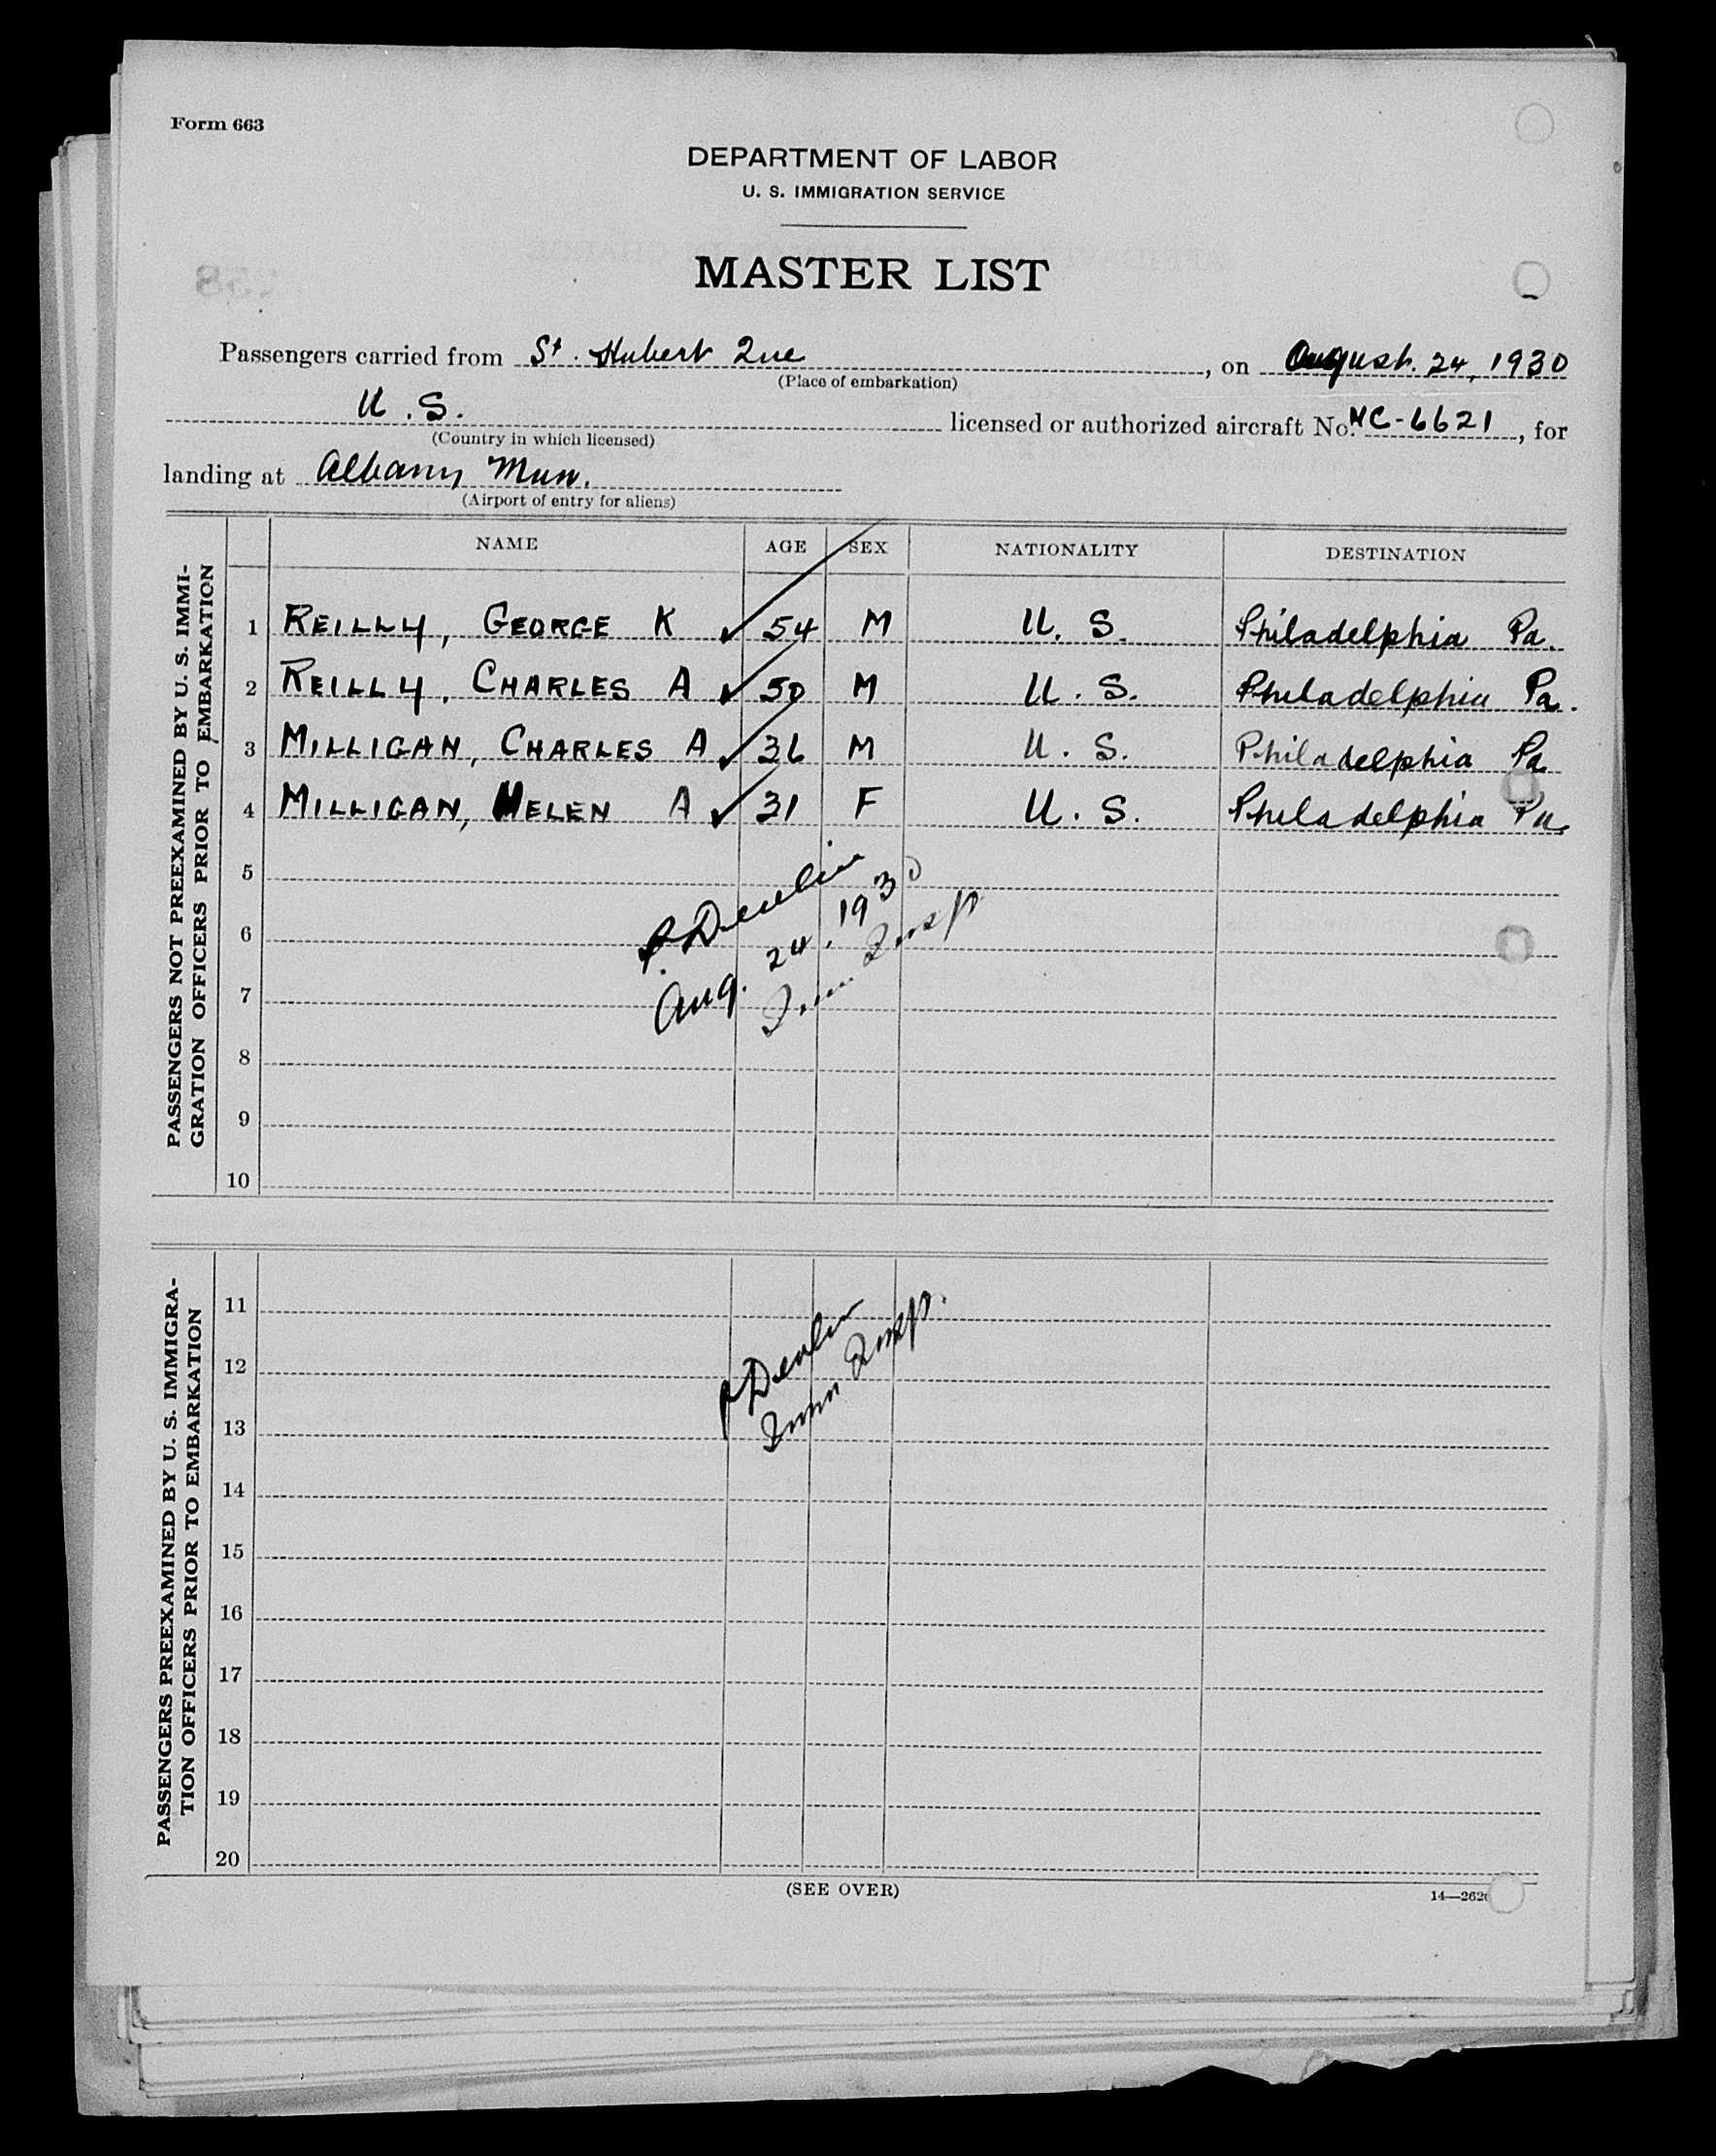 Form 663
DEPARTMENT OF LABOR
U. S. IMMIGRATION SERVICE
MASTER LIST
Passengers carried from St. Hubert Que, on August. 24, 1930
(Place of embarkation)
U.S. licensed or authorized aircraft No. NC-6621, for
(Country in which licensed)
landing at Albany Mun.
(Airport of entry for aliens)
PASSENGERS NOT PREEXAMINED BY U. S. IMMI-
GRATION OFFICERS PRIOR TO EMBARKATION
NAME AGE SEX NATIONALITY DESTINATION
1 REILLY, GEORGE K ✓ 54 M U. S. Philadelphia Pa.
2 REILLY, CHARLES A ✓ 50 M U. S. Philadelphia Pa.
3 MILLIGAN, CHARLES A ✓ 36 M U. S. Philadelphia Pa
4 MILLIGAN, HELEN A ✓ 31 F U. S. Philadelphia Pa.
5
P. Devlin
6
Aug. 24, 1930
Imm. Insp.
7
8
9
10
PASSENGERS PREEXAMINED BY U. S. IMMIGRA-
TION OFFICERS PRIOR TO EMBARKATION
11
12
P Devlin
Imm Insp.
13
14
15
16
17
18
19
20
(SEE OVER)